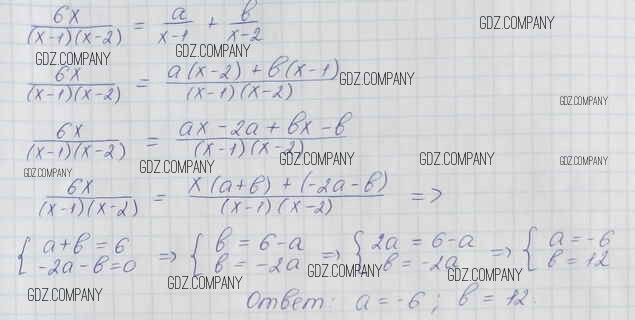 6x/((x-1)(x-2)) = a/(x-1) + b/(x-2)
GDZ.COMPANY
GDZ.COMPANY GDZ.COMPANY
6x/((x-1)(x-2)) = (a(x-2) + b(x-1))/((x-1)(x-2))
GDZ.COMPANY
GDZ.COMPANY
6x/((x-1)(x-2)) = (ax - 2a + bx - b)/((x-1)(x-2))
GDZ.COMPANY GDZ.COMPANY GDZ.COMPANY GDZ.COMPANY
GDZ.COMPANY
6x/((x-1)(x-2)) = (x(a+b) + (-2a-b))/((x-1)(x-2)) =>
{ a+b = 6 => { b = 6-a => { 2a = 6-a => { a = -6
-2a-b=0 b = -2a b = -2a b = 12
GDZ.COMPANY GDZ.COMPANY GDZ.COMPANY GDZ.COMPANY
Ответ: a = -6; b = 12.